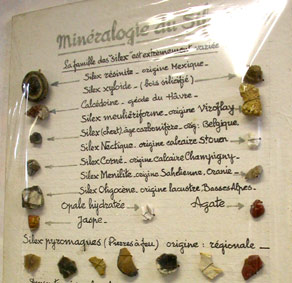 Minéralogie du Sil
La famille des "silex" est extrêmement variée
Silex résinite - origine Mexique -
Silex xyloïde - (bois silicifié)
Calcédoine - géode du Hâvre -
Silex meuliériforme - origine Viroflay
Silex (chert) âge carbonifère - orig: Belgique
Silex Nectique - origine calcaire St Ouen -
Silex Corné - origine Calcaire Champigny -
Silex Ménilite - origine Sahélienne, Oranie -
Silex Oligocène - origine lacustre Basses Alpes -
Opale hydratée Agate
Jaspe
Silex pyromaques (Pierres à feu) origine : régionale -